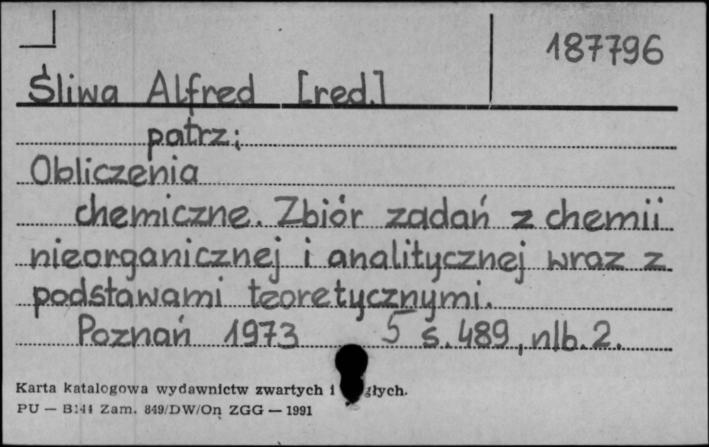 187796
Śliwa Alfred [red.]
patrz:
Obliczenia
chemiczne. Zbiór zadań z chemii
nieorganicznej i analitycznej wraz z
podstawami teoretycznymi.
Poznań 1973 5 s. 489, nlb. 2.
Karta katalogowa wydawnictw zwartych i głych.
PU — B-44 Zam. 849/DW/On ZGG — 1991